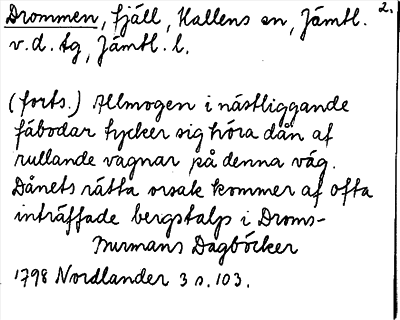 Drommen, fjäll, Hallens sn, Jämtl. 2.
v. d. tg, Jämtl. l.
(forts.) Allmogen i nästliggande
fäbodar tycker sig höra dån af
rullande vagnar på denna väg.
Dånets rätta orsak kommer af ofta
inträffade bergstalps i Droms-
Burmans Dagböcker
1798 Nordlander 3 s. 103.